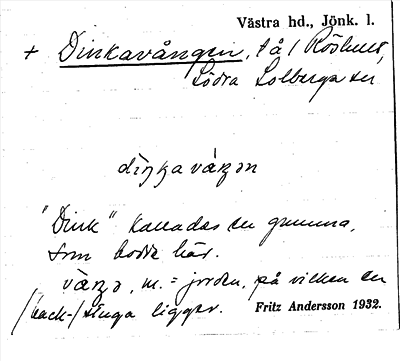 Västra hd., Jönk. l.
+ Dinkavången, t å 1
Södra Solberga sn
diŋkavåŋən
"Dink" kallades en gumma,
som bodde här.
våŋə, m. = jorden, på vilken en
/back-/stuga ligger. Fritz Andersson 1932.